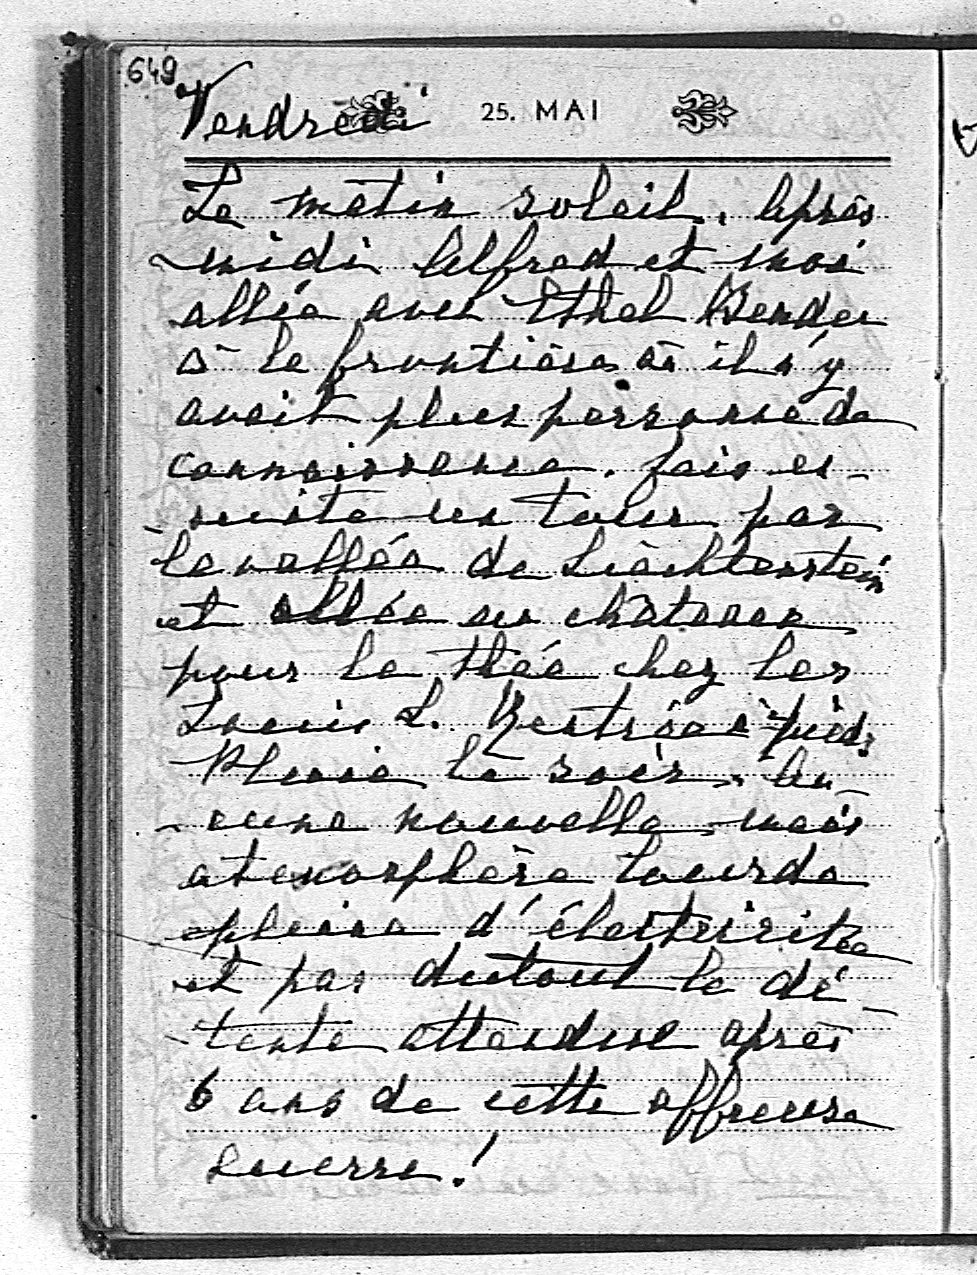 649
Vendredi 25. MAI
Le matin soleil. Après
midi Alfred et moi
allée avec Ethel Bender
à la frontière où il n'y
avait plus personne de
connaissance. fais en-
suite un tour par
la vallée de Liechtenstein
et allée au château
pour le thée chez les
Louis L. Rentrée à pied,
Pluie le soir. Au-
cune nouvelle, mais
atmosphère lourde
pleine d'électricitée
et pas dutout la dé-
tente attendue après
6 ans de cette affreuse
guerre!